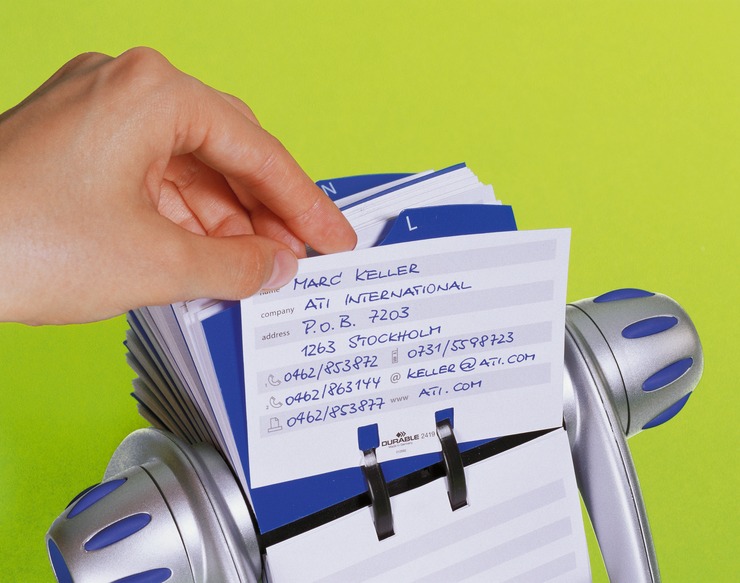 N
L
name MARC KELLER
company ATI INTERNATIONAL
address P.O.B. 7203
1263 STOCKHOLM
0462/853872 0731/5598723
0462/863144 @ KELLER@ATI.COM
0462/853877 www ATI.COM
DURABLE 2419